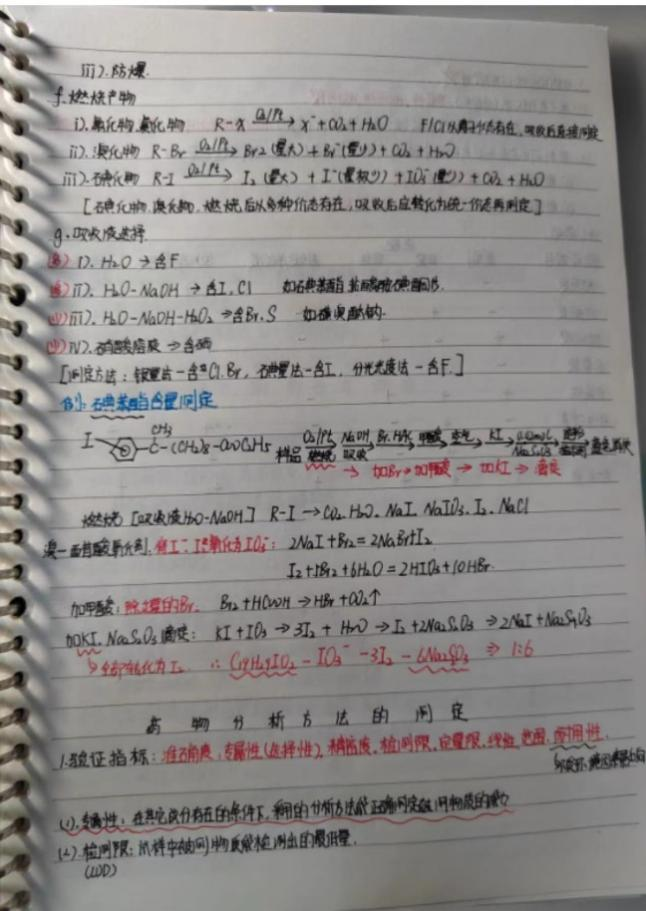 iii). 防爆.
f. 燃烧产物
i). 氟化物.氯化物 R-X O2/Pt → X⁻ + CO2 + H2O F/Cl以离子状态存在,吸收后直接测定
ii). 溴化物 R-Br O2/Pt → Br2 (量大) + Br⁻(量少) + CO2 + H2O
iii). 碘化物 R-I O2/Pt → I2 (量大) + I⁻(量极少) + IO3⁻(量少) + CO2 + H2O
[碘化物.溴化物.燃烧后以多种价态存在,吸收后应转化为统一价态再测定]
g. 吸收液选择
i). H2O → 含F
ii). H2O-NaOH → 含I. Cl 如碘苯酯
iii). H2O-NaOH-H2O2 → 含Br. S 如磺溴酞钠.
iv). 硝酸溶液 → 含硒
[测定方法: 银量法-含Cl.Br, 碘量法-含I, 分光光度法-含F.]
例: 碘苯酯含量测定
I CH3 C-(CH2)8-COOC2H5 样品 O2/Pt 燃烧 NaOH 吸收 Br2.HAc 甲酸 空气 KI Na2S2O3 淀粉
→ 加Br → 加甲酸 → 加KI → 滴定
燃烧 [吸收液H2O-NaOH] R-I → CO2. H2O. NaI. NaIO3. I2. NaCl
溴-醋酸氧化剂. 将I⁻. I2氧化为IO3⁻: 2NaI + Br2 = 2NaBr + I2
I2 + 5Br2 + 6H2O = 2HIO3 + 10HBr.
加甲酸: 除过量的Br. Br2 + HCOOH → HBr + CO2↑
加KI. Na2S2O3滴定: KI + IO3 → 3I2 + H2O → I2 + 2Na2S2O3 → 2NaI + Na2S4O6
全部转化为I2 ∴ C19H29IO2 - IO3⁻ - 3I2 - 6Na2S2O3 ⇒ 1:6
药物分析方法的测定
1. 验证指标: 准确度, 专属性(选择性), 精密度, 检测限, 定量限, 线性, 范围, 耐用性.
(1). 专属性: 在其它成分存在的条件下, 采用的分析方法能正确测定被测物质的能力
(2). 检测限: 试样中被测物质能检测出的最低量.
(LOD)